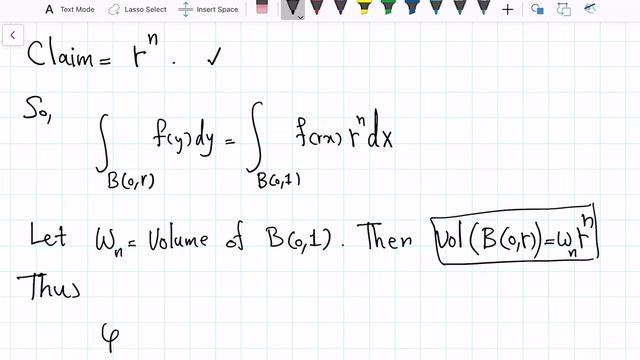 A Text Mode Lasso Select Insert Space
Claim = r^n . ✓
So,
∫_{B(0,r)} f(y)dy = ∫_{B(0,1)} f(rx) r^n dx
Let ω_n = Volume of B(0,1). Then Vol(B(0,r)) = ω_n r^n
Thus
φ